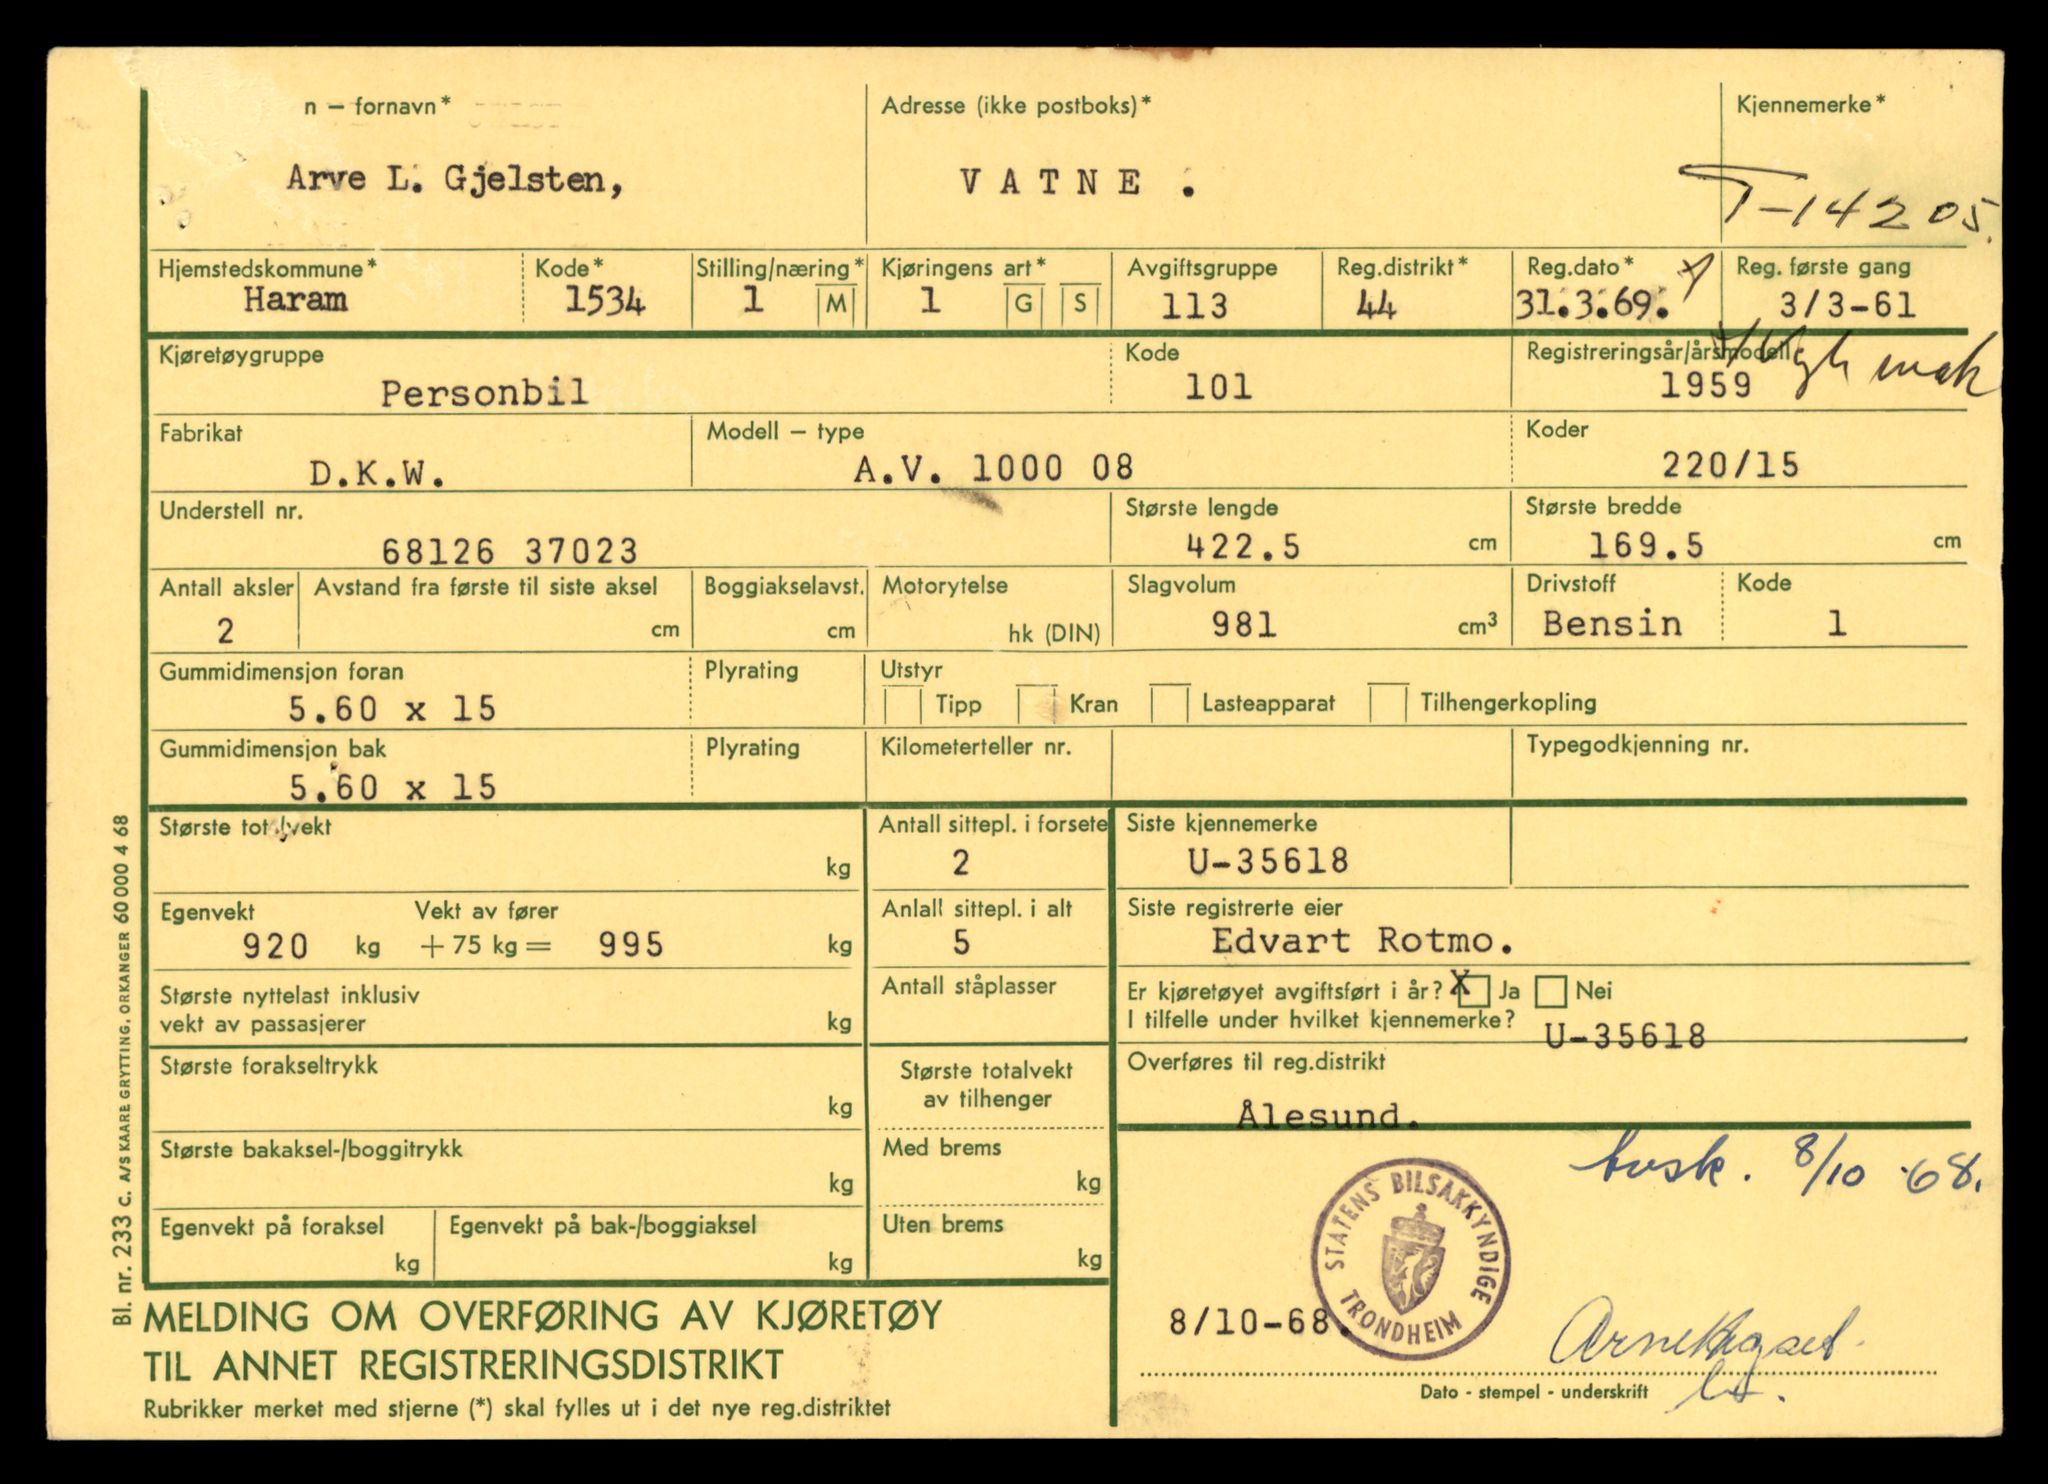 n – fornavn*
Adresse (ikke postboks)*
Kjennemerke*
Arve L. Gjelsten,
VATNE .
T-14205.
Hjemstedskommune*
Kode*
Stilling/næring*
Kjøringens art*
Avgiftsgruppe
Reg.distrikt*
Reg.dato*
Reg. første gang
Haram
1534
1
M
1
G
S
113
44
31.3.69.
3/3-61
Kjøretøygruppe
Kode
Registreringsår/årsmodell
Personbil
101
1959
Fabrikat
Modell – type
Koder
D.K.W.
A.V. 1000 08
220/15
Understell nr.
Største lengde
Største bredde
68126 37023
422.5 cm
169.5 cm
Antall aksler
Avstand fra første til siste aksel
Boggiakselavst.
Motorytelse
Slagvolum
Drivstoff
Kode
2
cm
cm
hk (DIN)
981 cm³
Bensin
1
Gummidimensjon foran
Plyrating
Utstyr
5.60 x 15
Tipp
Kran
Lasteapparat
Tilhengerkopling
Gummidimensjon bak
Plyrating
Kilometerteller nr.
Typegodkjenning nr.
5.60 x 15
Største totalvekt
kg
Antall sittepl. i forsete
2
Siste kjennemerke
U-35618
Egenvekt
Vekt av fører
920 kg + 75 kg = 995 kg
Anlall sittepl. i alt
5
Siste registrerte eier
Edvart Rotmo.
Største nyttelast inklusiv
vekt av passasjerer
kg
Antall ståplasser
Er kjøretøyet avgiftsført i år? X Ja Nei
I tilfelle under hvilket kjennemerke?
U-35618
Største forakseltrykk
kg
Største totalvekt
av tilhenger
Overføres til reg.distrikt
Ålesund.
Største bakaksel-/boggitrykk
kg
Med brems
kg
8/10-68.
Egenvekt på foraksel
kg
Egenvekt på bak-/boggiaksel
kg
Uten brems
kg
STATENS BILSAKKYNDIGE
TRONDHEIM
8/10-68.
Dato - stempel - underskrift
MELDING OM OVERFØRING AV KJØRETØY
TIL ANNET REGISTRERINGSDISTRIKT
Rubrikker merket med stjerne (*) skal fylles ut i det nye reg.distriktet
Bl. nr. 233 C. A/S KAARE GRYTTING, ORKANGER 60 000 4 68